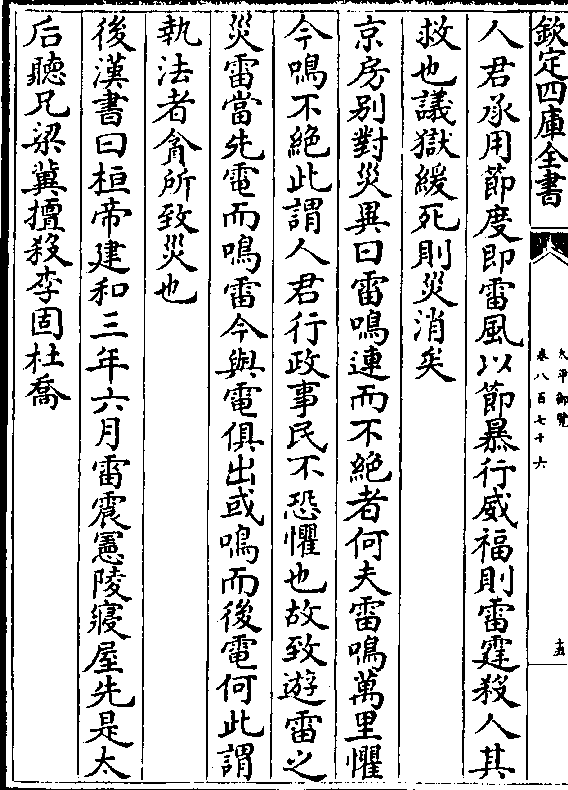 欽定四庫全書
太平御覽
卷八百七十六
十五
人君承用節度即雷風以節暴行威福則雷霆殺人其
救也議獄緩死則災消矣
京房别對災異曰雷鳴連而不絶者何夫雷鳴萬里懼
今鳴不絶此謂人君行政事民不恐懼也故致遊雷之
災雷當先電而鳴雷今與電俱出或鳴而後電何此謂
執法者貪所致災也
後漢書曰桓帝建和三年六月雷震憲陵寢屋先是太
后聽兄梁冀擅殺李固杜喬